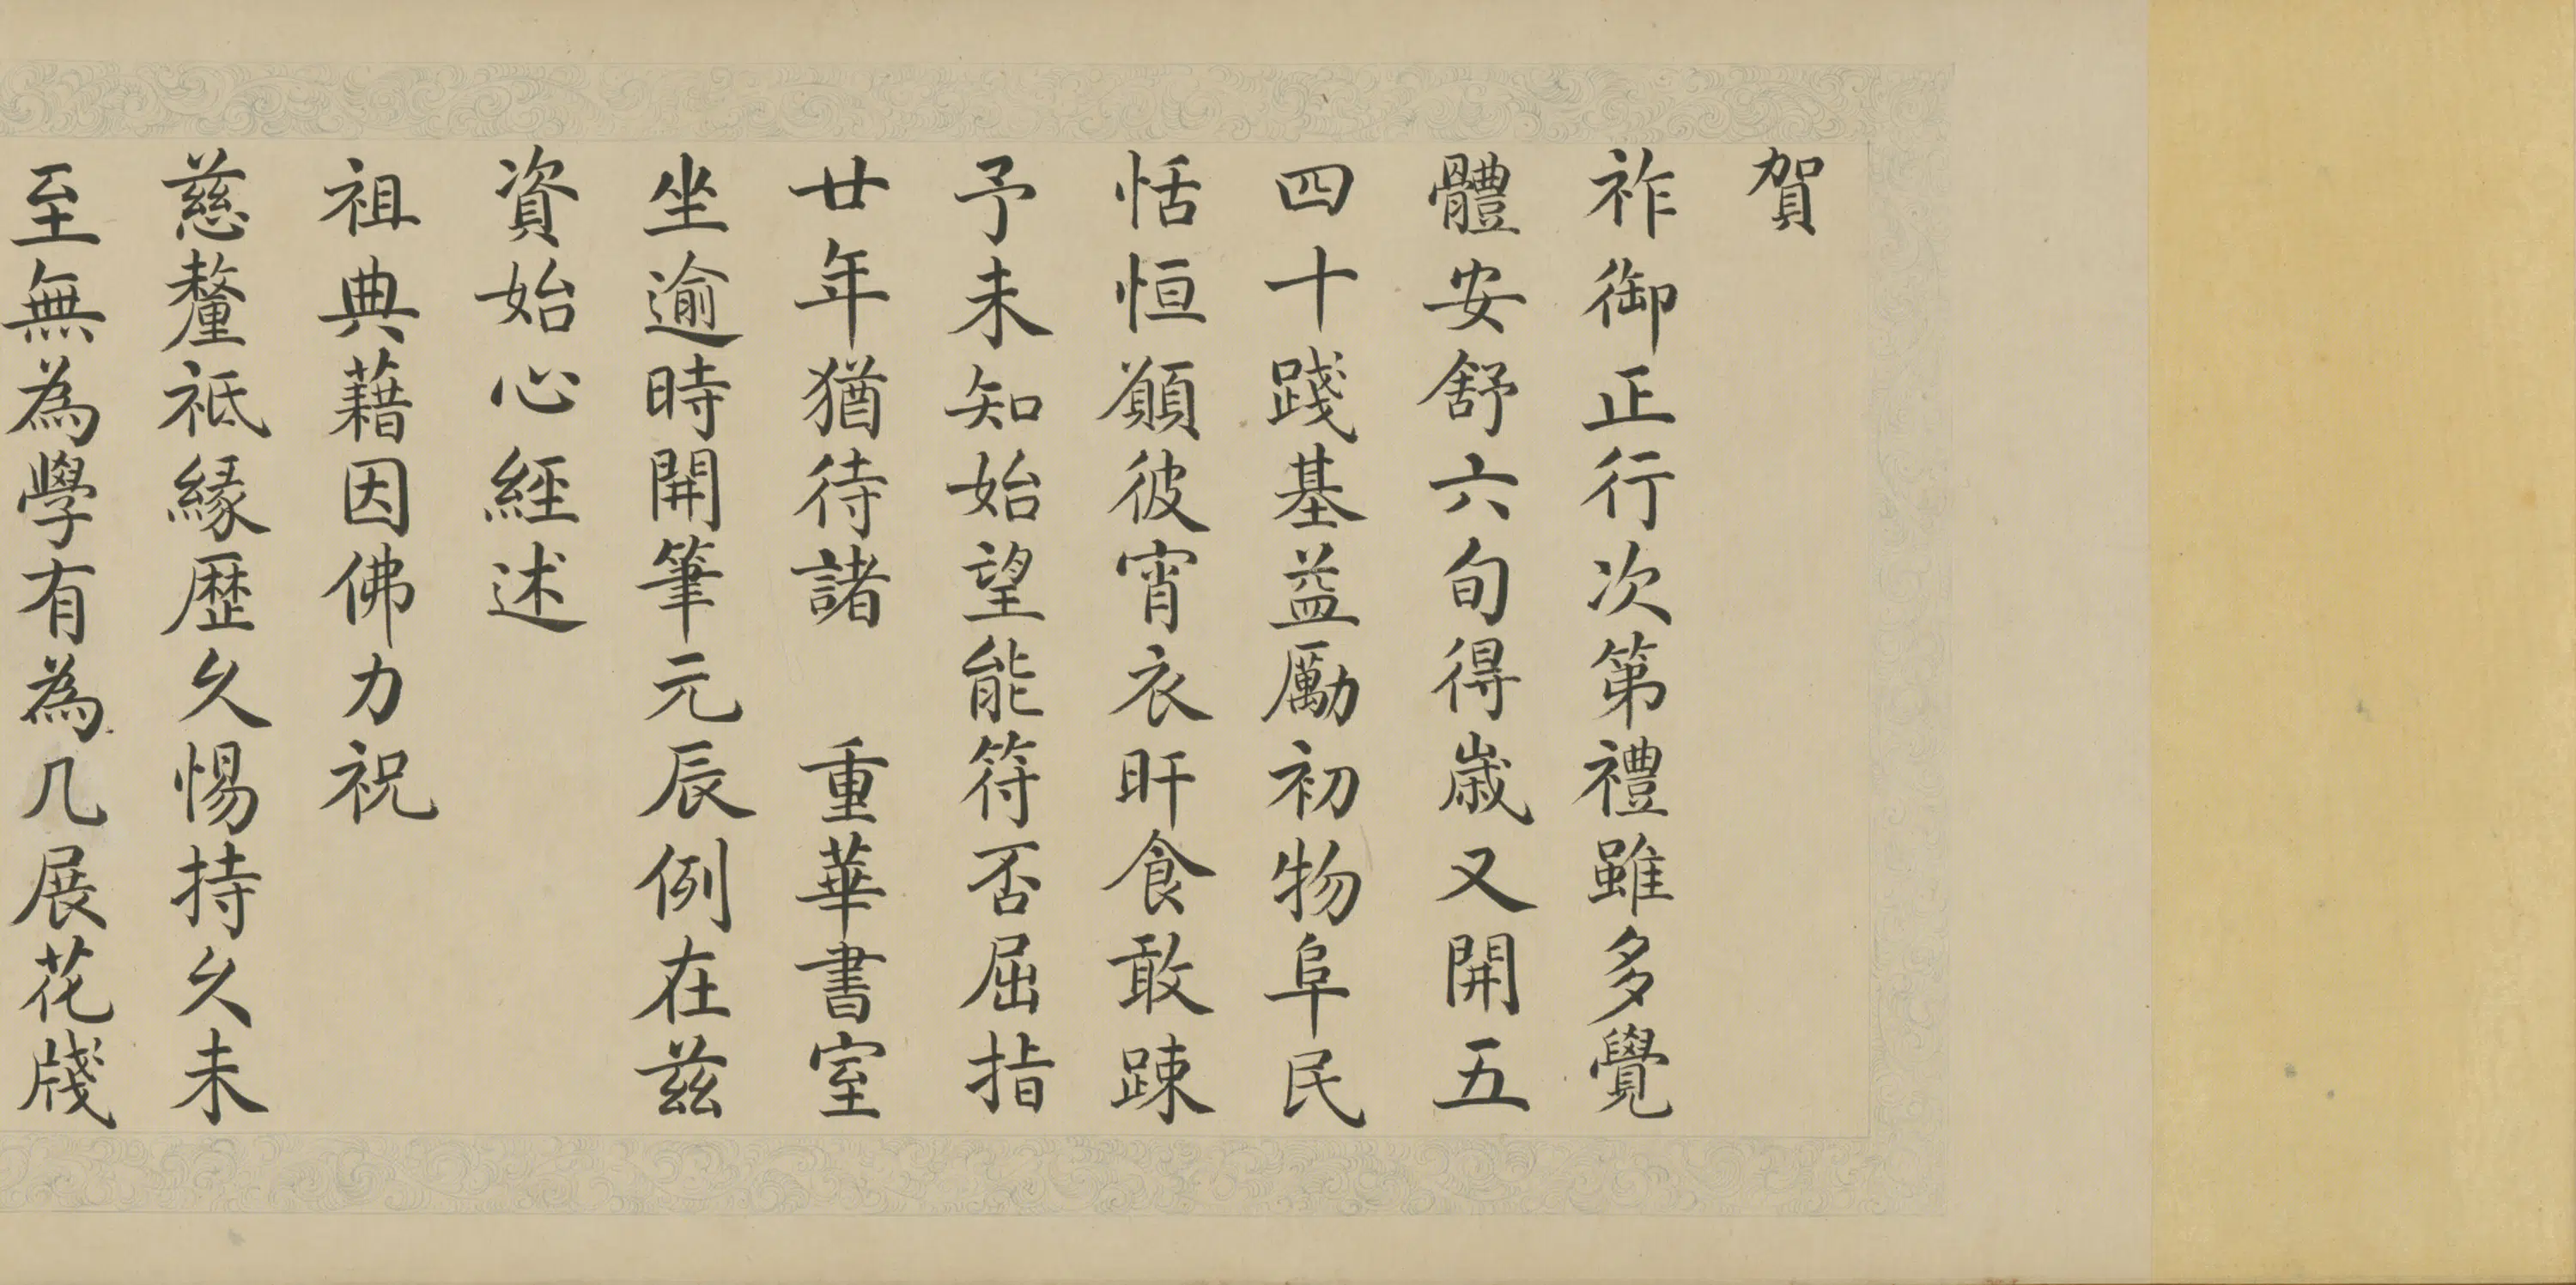 賀
祚御正行次第禮雖多覺
體安舒六旬得歲又開五
四十踐基益勵初物阜民
恬恒願彼宵衣旰食敢踈
予未知始望能符否屈指
廿年猶待諸 重華書室
坐逾時開筆元辰例在茲
資始心經述
祖典藉因佛力祝
慈釐祗緣歷久惕持久未
至無為學有為几展花牋